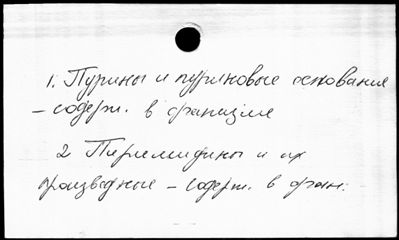 1. Пурины и пуриновые основания
– содерж. в организме
2 Пиримидины и их
производные – содерж. в орган.